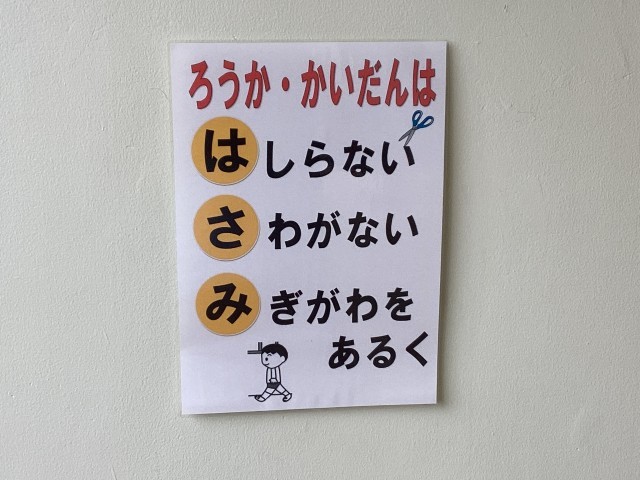 ろうか・かいだんは
はしらない
さわがない
みぎがわを
あるく